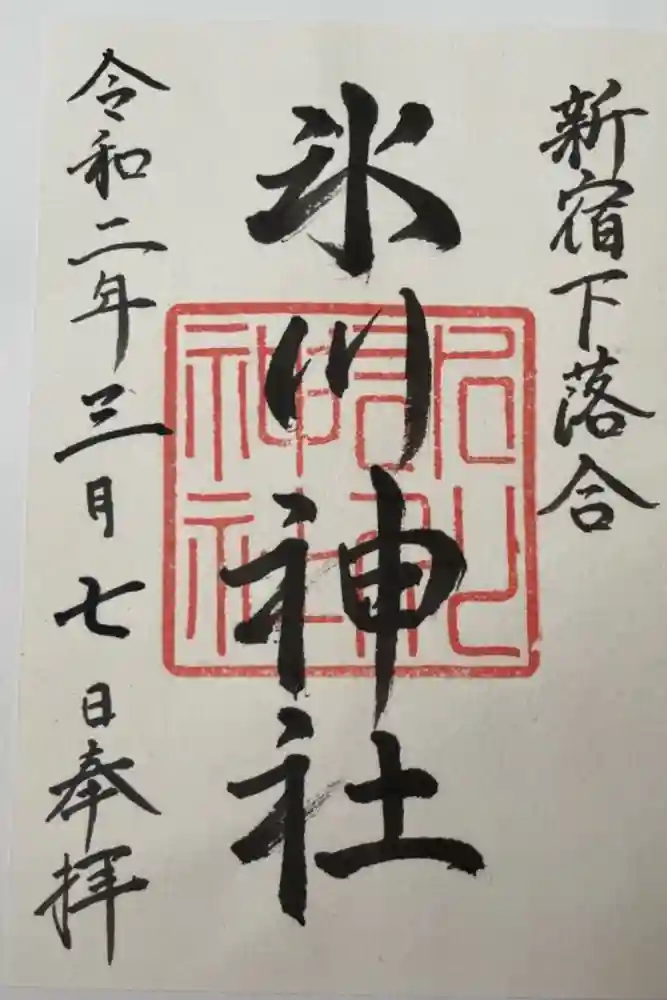 新宿下落合
氷川神社
令和二年三月七日奉拝